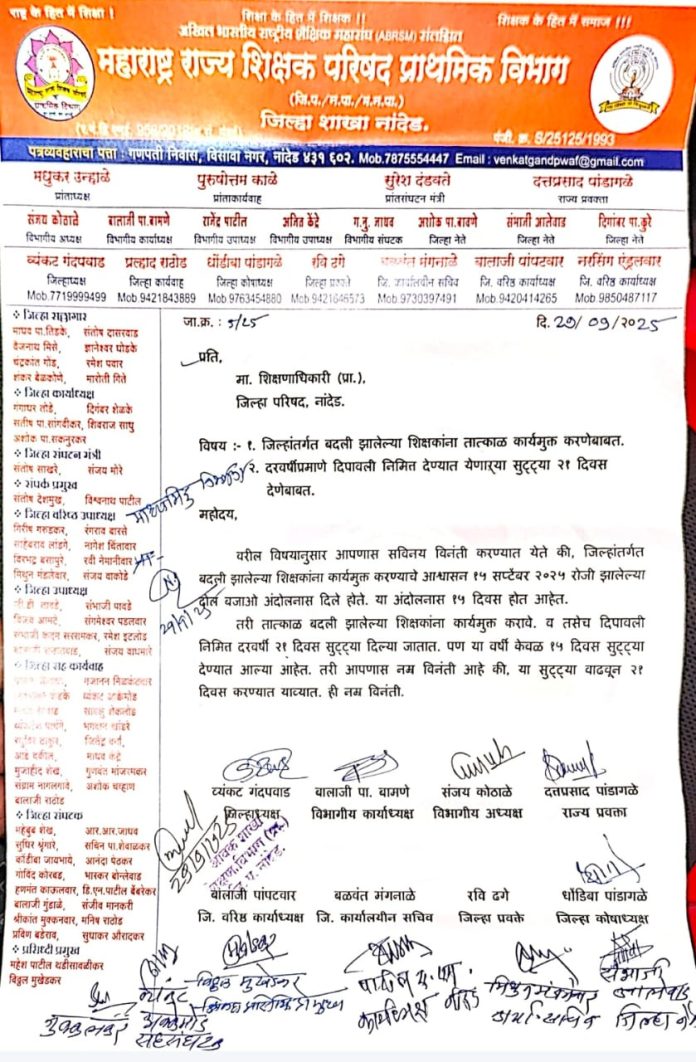 राष्ट्र के हित में शिक्षा !
शिक्षा के हित में शिक्षक !!
शिक्षक के हित में समाज !!!
अखिल भारतीय राष्ट्रीय शैक्षिक महासंघ (ABRSM) संलग्नित
महाराष्ट्र राज्य शिक्षक परिषद प्राथमिक विभाग
(जि.प./म.पा./न.पा.)
जिल्हा शाखा नांदेड.
पंजी. क्र. S/25125/1993
पत्रव्यवहाराचा पत्ता : गणपती निवास, विसावा नगर, नांदेड ४३१ ६०२. Mob.7875554447 Email : venkatgandpwaf@gmail.com
मधुकर उन्हाळे
पुरुषोत्तम काळे
सुरेश दंडवते
दत्तप्रसाद पांडागळे
प्रांताध्यक्ष
प्रांतकार्यवाह
प्रांतसंघटन मंत्री
राज्य प्रवक्ता
संजय कोठाळे
बालाजी पा.बामणे
राजेंद्र पाटील
अनिल केंद्रे
ग.नु. जाधव
अशोक पा.बावणे
संभाजी आलेवाड
दिगांबर पा.कुरे
विभागीय अध्यक्ष
विभागीय कार्याध्यक्ष
विभागीय उपाध्यक्ष
विभागीय उपाध्यक्ष
विभागीय संघटक
जिल्हा नेते
जिल्हा नेते
जिल्हा नेते
व्यंकट गंदपवाड
प्रल्हाद राठोड
धोंडीबा पांडागळे
रवि ढगे
बळवंत मंगनाळे
बालाजी पांपटवार
नरसिंग एंड्रलवार
जिल्हाध्यक्ष
जिल्हा कार्यवाह
जिल्हा कोषाध्यक्ष
जिल्हा प्रवक्ते
जि. कार्यालयीन सचिव
जि. वरिष्ठ कार्याध्यक्ष
जि. वरिष्ठ कार्याध्यक्ष
Mob.7719999499
Mob.9421843889
Mob.9763454880
Mob.9421646573
Mob.9730397491
Mob.9420414265
Mob.9850487117
जा.क्र. : 5/25
दि. 29/09/2025
प्रति,
मा. शिक्षणाधिकारी (प्रा.),
जिल्हा परिषद, नांदेड.
विषय :- १. जिल्हांतर्गत बदली झालेल्या शिक्षकांना तात्काळ कार्यमुक्त करणेबाबत.
२. दरवर्षीप्रमाणे दिपावली निमित्त देण्यात येणाऱ्या सुट्ट्या २१ दिवस
देणेबाबत.
महोदय,
वरील विषयानुसार आपणास सविनय विनंती करण्यात येते की, जिल्हांतर्गत
बदली झालेल्या शिक्षकांना कार्यमुक्त करण्याचे आश्वासन १५ सप्टेंबर २०२५ रोजी झालेल्या
ढोल बजाओ अंदोलनास दिले होते. या अंदोलनास १५ दिवस होत आहेत.
तरी तात्काळ बदली झालेल्या शिक्षकांना कार्यमुक्त करावे. व तसेच दिपावली
निमित्त दरवर्षी २१ दिवस सुट्ट्या दिल्या जातात. पण या वर्षी केवळ १५ दिवस सुट्ट्या
देण्यात आल्या आहेत. तरी आपणास नम्र विनंती आहे की, या सुट्ट्या वाढवून २१
दिवस करण्यात याव्यात. ही नम्र विनंती.
व्यंकट गंदपवाड
बालाजी पा. बामणे
संजय कोठाळे
दत्तप्रसाद पांडागळे
जिल्हाध्यक्ष
विभागीय कार्याध्यक्ष
विभागीय अध्यक्ष
राज्य प्रवक्ता
29/9/2025
बालाजी पांपटवार
बळवंत मंगनाळे
रवि ढगे
धोंडिबा पांडागळे
जि. वरिष्ठ कार्याध्यक्ष
जि. कार्यालयीन सचिव
जिल्हा प्रवक्ते
जिल्हा कोषाध्यक्ष
❖ जिल्हा सल्लागार
माधव पा.तिडके, संतोष दासरवाड
वैजनाथ मिसे, ज्ञानेश्वर घोडके
चंद्रकांत गोंड, रमेश पवार
शंकर बेळकोणे, मारोती गिते
❖ जिल्हा कार्याध्यक्ष
गंगाधर तोडे, दिगंबर शेळके
सतीष पा.सांगवीकर, शिवराज साधु
अशोक पा.सकनुरकर
❖ जिल्हा संघटन मंत्री
संतोष साखरे, संजय मोरे
❖ संपर्क प्रमुख
संतोष देशमुख, विश्वनाथ पाटील
❖ जिल्हा वरिष्ठ उपाध्यक्ष
गिरीष गरुडकर, रंगराव वारसे
साहेबराव लांडगे, नागेश चिंतावार
विरभद्र बसापुरे, रवी नेमानीवार
मिथुन मंडलेवार, संजय वाकोडे
❖ जिल्हा उपाध्यक्ष
संभाजी पावडे
संगमेश्वर पडलवार
रमेश इटलोड
संजय वाघमारे
❖ जिल्हा सह कार्यवाह
गजानन मिडकंटवार
मुजाहीद शेख, गुणवंत मांजरमकर
संग्राम नागलगावे, अशोक चव्हाण
बालाजी राठोड
❖ जिल्हा संघटक
महेबुब शेख, आर.आर.जाधव
सुधिर श्रृंगारे, सचिन पा.शेवाळकर
कोंडीबा जायभाये, आनंदा पेढकर
गोविंद कोरबड, भास्कर बोन्लेवाड
हणमंत काऊलवार, डि.एन.पाटील बेंबरेकर
बालाजी गुंडाळे, संजीव मानकरी
श्रीकांत मुक्कनवार, मनिष राठोड
प्रविण बडेराव, सुधाकर औरादकर
❖ प्रसिध्दी प्रमुख
महेश पाटील थडीसावळीकर
विठ्ठल मुखेडकर
विठ्ठल मुखेडकर